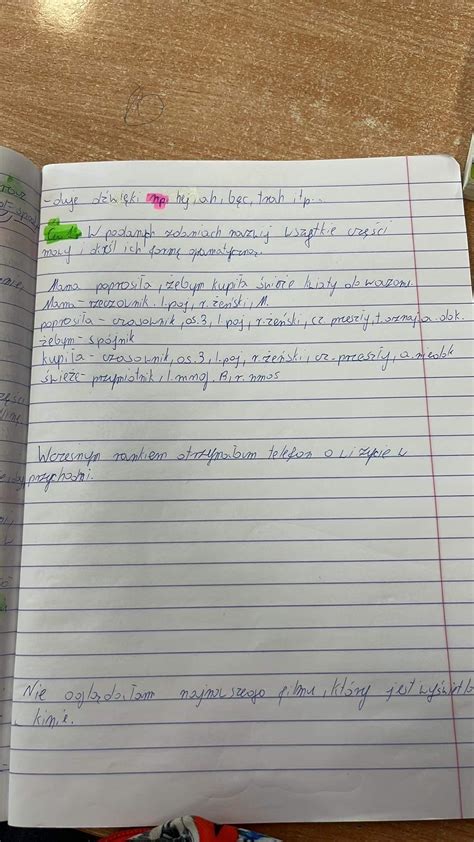 - daje dźwięki np. hej, ah, bęc, trah itp...
Ćw. W podanych zdaniach nazwij wszystkie części
mowy i określ ich formę gramatyczną.
Mama poprosiła, żebym kupiła świeże kwiaty do wazonu.
Mama - rzeczownik, l. poj, r. żeński, M.
poprosiła - czasownik, os. 3, l. poj, r. żeński, cz. przeszły, t. oznaj, a. dok.
żebym - spójnik
kupiła - czasownik, os. 3, l. poj, r. żeński, cz. przeszły, a. niedok
świeże - przymiotnik, l. mnoj. B, r. nmos
Wczesnym rankiem otrzymałam telefon o wizycie w
przychodni.
Nie oglądałam najnowszego filmu, który jest wyświetla
kinie.